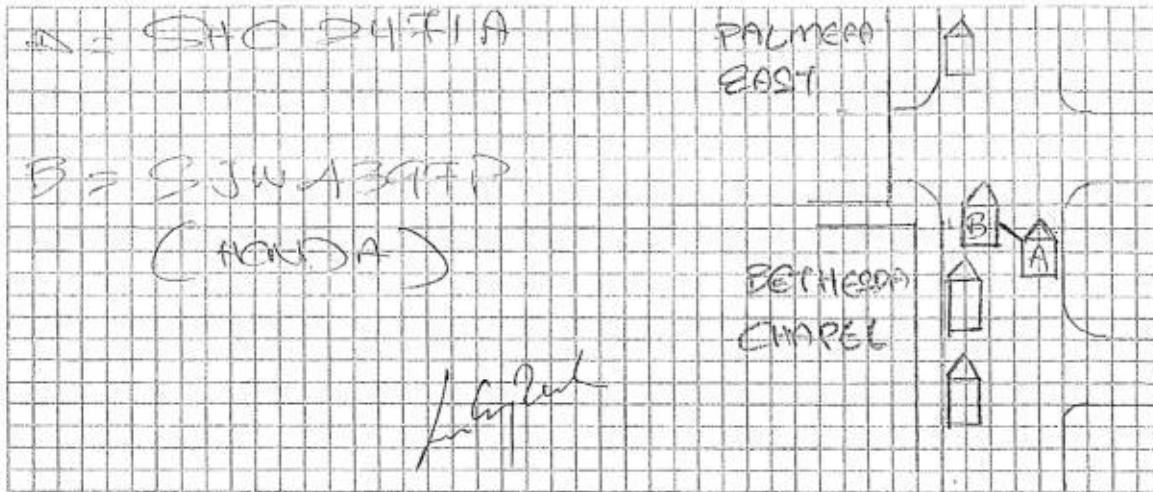 A = SHC 2471A
B = SJW 4397P
(HONDA)
PALMERA
EAST
B
A
BETHESDA
CHAPEL